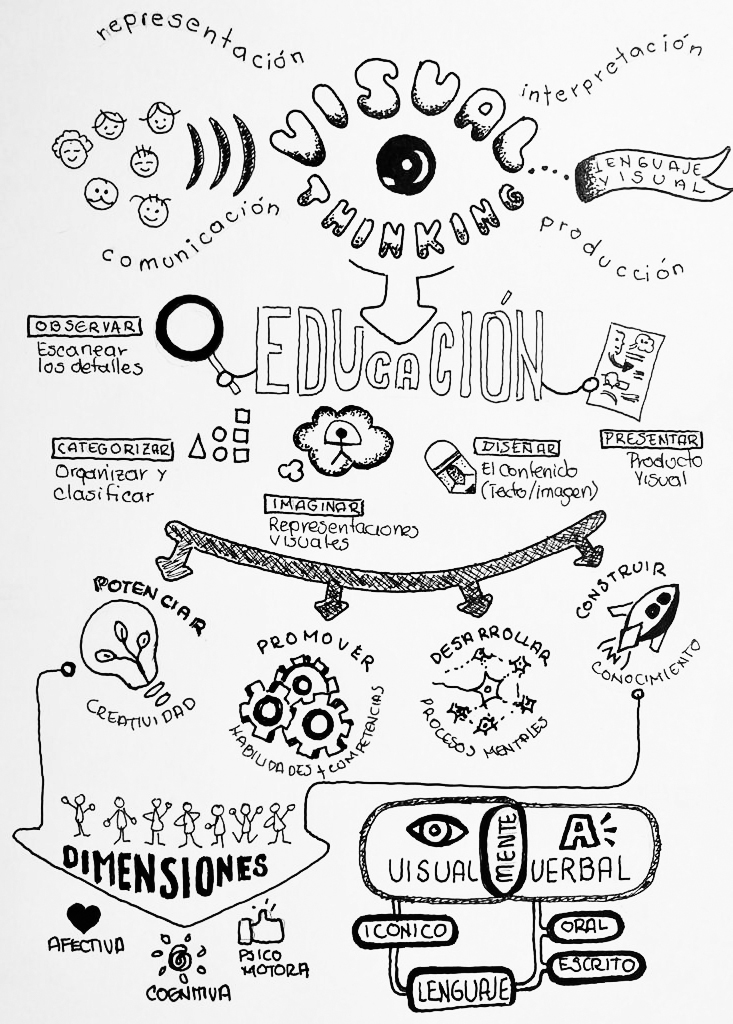 representación
interpretación
VISUAL
THINKING
LENGUAJE
VISUAL
comunicación
producción
EDUCACIÓN
OBSERVAR
Escanear
los detalles
CATEGORIZAR
Organizar y
clasificar
IMAGINAR
Representaciones
visuales
DISEÑAR
El contenido
(Texto/imagen)
PRESENTAR
Producto
visual
POTENCIAR
CREATIVIDAD
PROMOVER
HABILIDADES + COMPETENCIAS
DESARROLLAR
PROCESOS MENTALES
CONSTRUIR
CONOCIMIENTO
DIMENSIONES
AFECTIVA
COGNITIVA
PSICO
MOTORA
VISUAL
MENTE
A
VERBAL
ICÓNICO
ORAL
ESCRITO
LENGUAJE